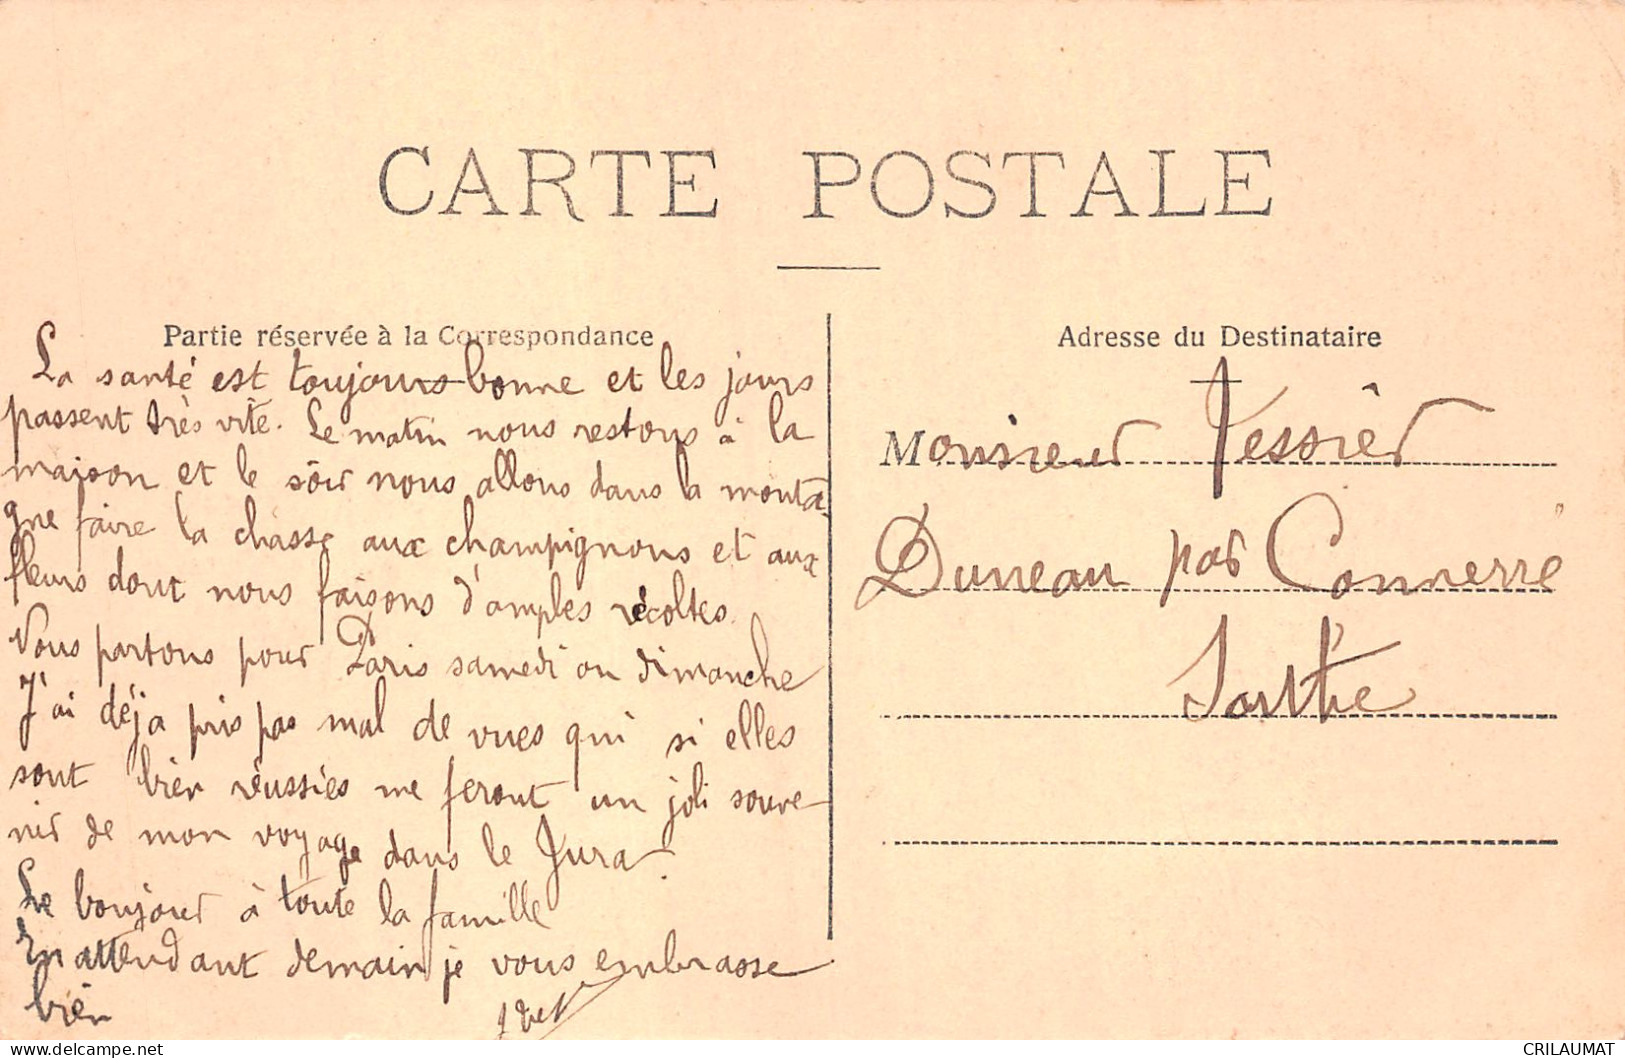 CARTE POSTALE
Partie réservée à la Correspondance
La santé est toujours bonne et les jours
passent très vite. Le matin nous restons à la
maison et le sôir nous allons dans la monta-
gne faire la chasse aux champignons et aux
fleurs dont nous faisons d'amples récoltes.
Nous partons pour Paris samedi ou dimanche
J'ai déjà pris pas mal de vues qui si elles
sont bien réussies me feront un joli souve-
nir de mon voyage dans le Jura.
Le bonjour à toute la famille
En attendant demain je vous embrasse
bien
Adresse du Destinataire
Monsieur Tessier
Duneau par Connerré
Sarthe
CRILAUMAT